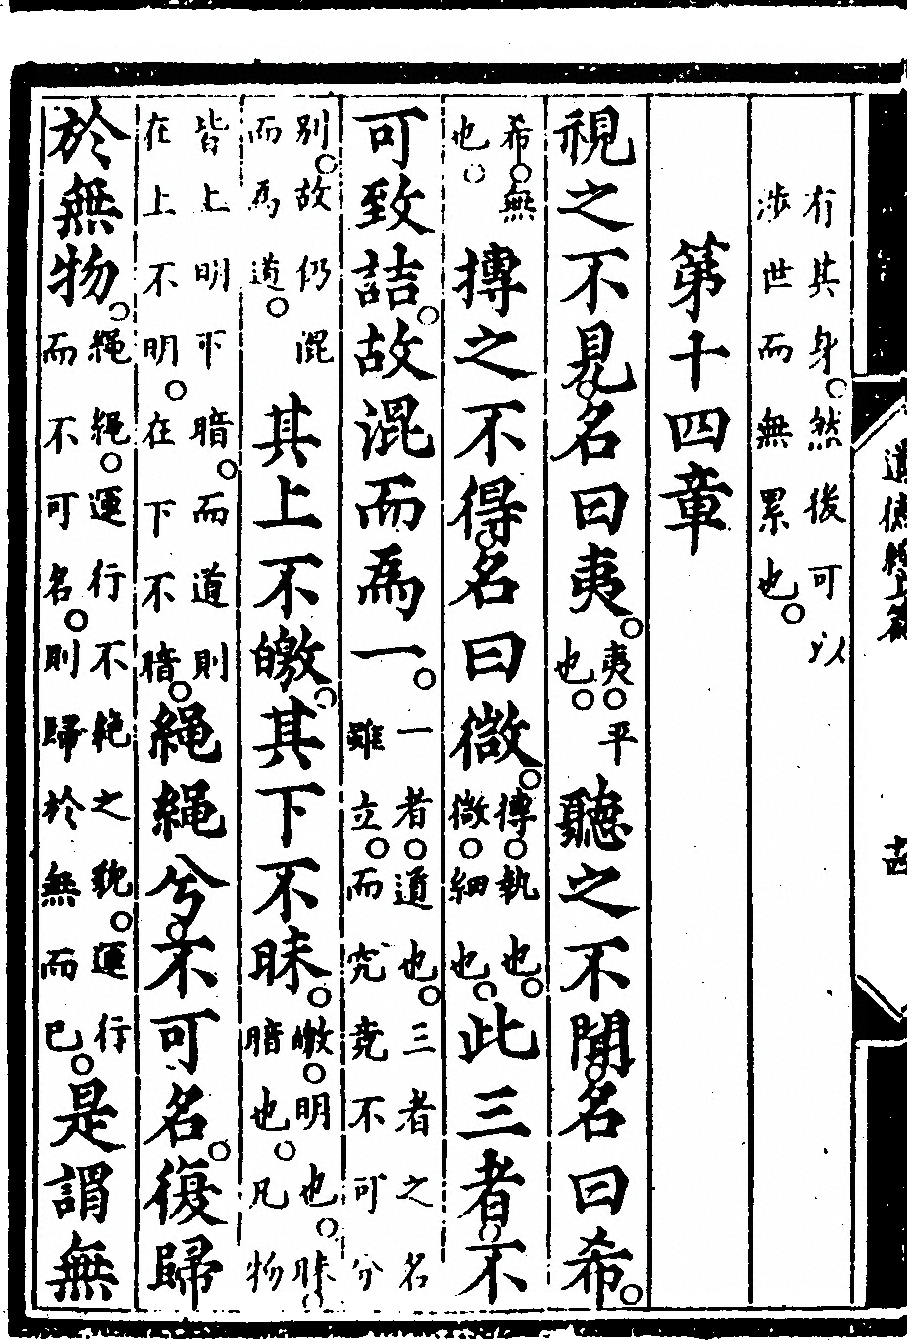 道德經上篇
十四
有其身。然後可以
涉世而無累也。
第十四章
視之不見。名曰夷。夷。平也。聽之不聞。名曰希。
希。無也。搏之不得。名曰微。搏。執也。微。細也。此三者。不
可致詰。故混而爲一。一者。道也。三者之名雖立。而究竟不可分
別。故仍混而爲道。其上不皦。其下不昧。皦。明也。昧。暗也。凡物
皆上明下暗。而道則在上不明。在下不暗。繩繩兮。不可名。復歸
於無物。繩繩。運行不絶之貌。運行而不可名。則歸於無而已。是謂無